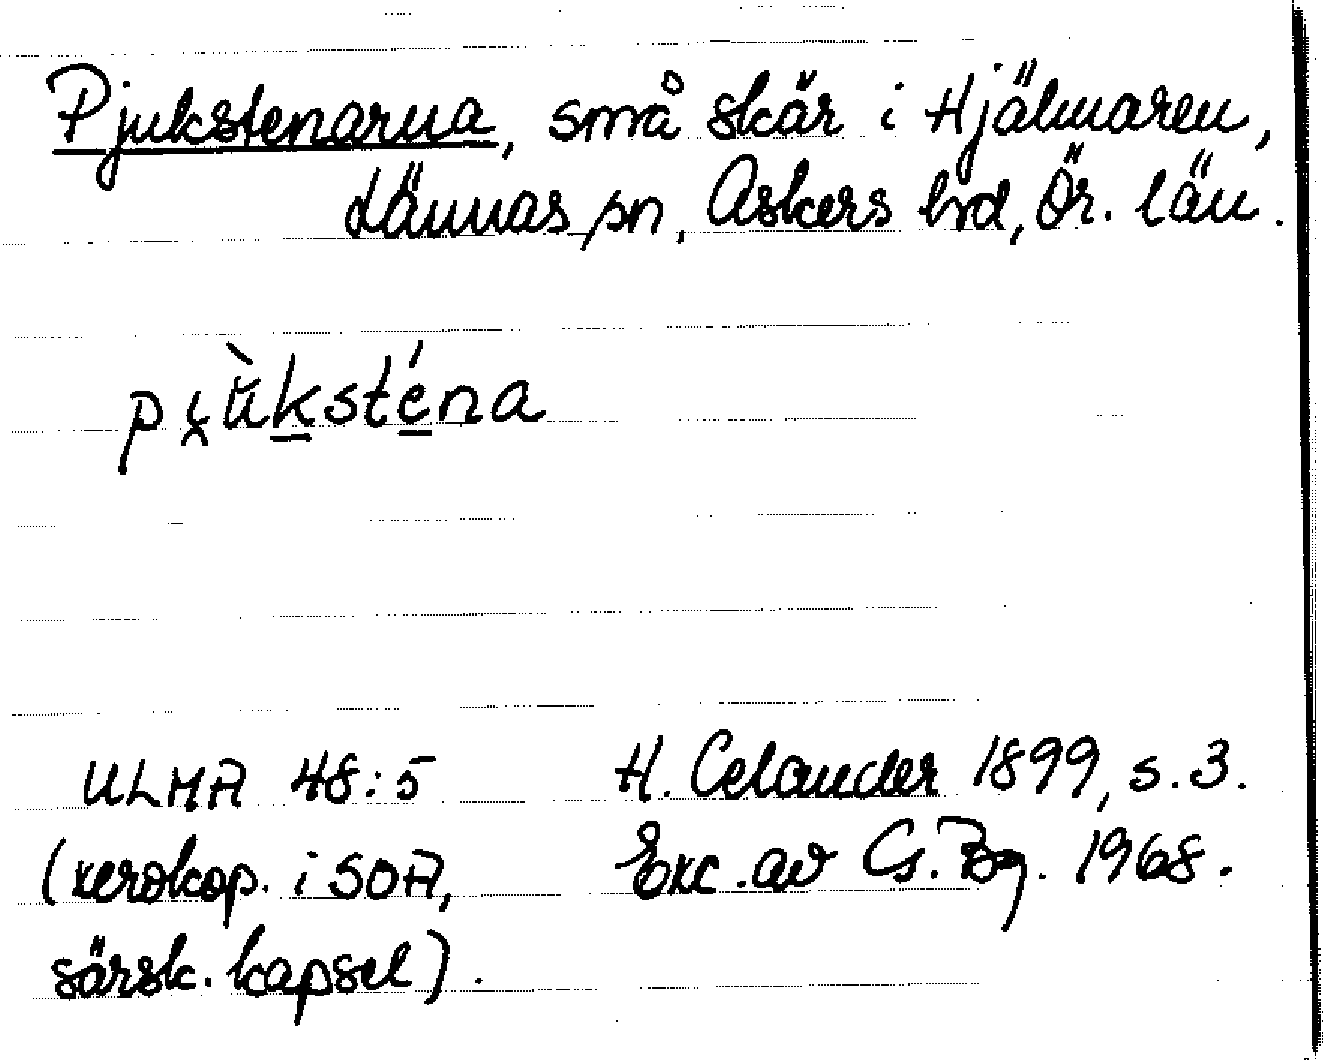 Pjukstenarna, små skär i Hjälmaren,
Lännäs sn, Askers hrd, Ör. län.
ULMA 48:5
H. Celander 1899, s. 3.
(xerokop. i SOA,
Exc. av G. Bg. 1968.
särsk. kapsel).